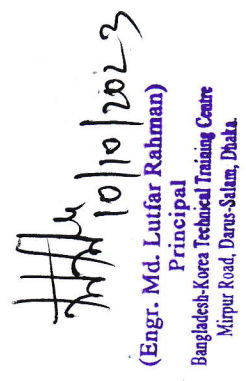 10/10/2023
(Engr. Md. Lutfar Rahman)
Principal
Bangladesh-Korea Technical Training Centre
Mirpur Road, Darus-Salam, Dhaka.